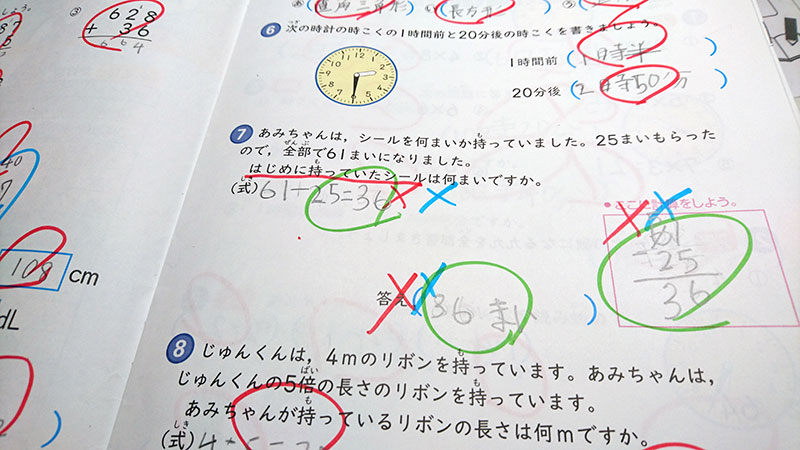 ③
628
+ 36
664
108 cm
dL
6 次の時計の時こくの1時間前と20分後の時こくを書きましょう。
1時間前 (1時半)
20分後 (2時50分)
7 あみちゃんは,シールを何まいか持っていました。25まいもらった
ので,全部で61まいになりました。
はじめに持っていたシールは何まいですか。
(式) 61-25=36
ここに計算をしよう。
61
-25
36
答え (36 まい)
8 じゅんくんは,4mのリボンを持っています。あみちゃんは,
じゅんくんの5倍の長さのリボンを持っています。
あみちゃんが持っているリボンの長さは何mですか。
(式)